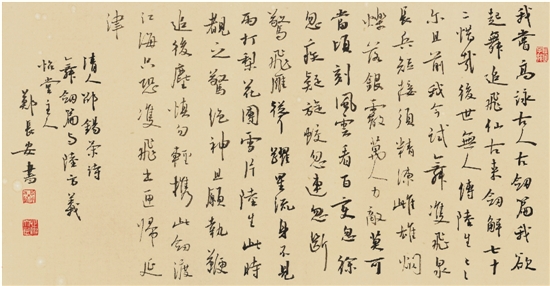 我嘗高詠古人古劒篇我欲
起舞追飛仙古來劒解七十
二惜哉後世無人傳陸生々
尔且前我今試舞雙飛泉
長兵短接須精練雌雄炯
爍落銀霰萬人力敵莫可
當頃刻風雲看百變忽徐
忽疾疑旋蛟忽連忽斷
驚飛雁縱躍星流身不見
雨打梨花圍雪片陸生此時
觀之驚絕神且願執鞭
追後塵慎勿輕攜此劒渡
江海只恐雙飛出匣歸延
津
清人邵錫榮詩
舞劒篇與陸方義
怡堂主人
鄭長安書